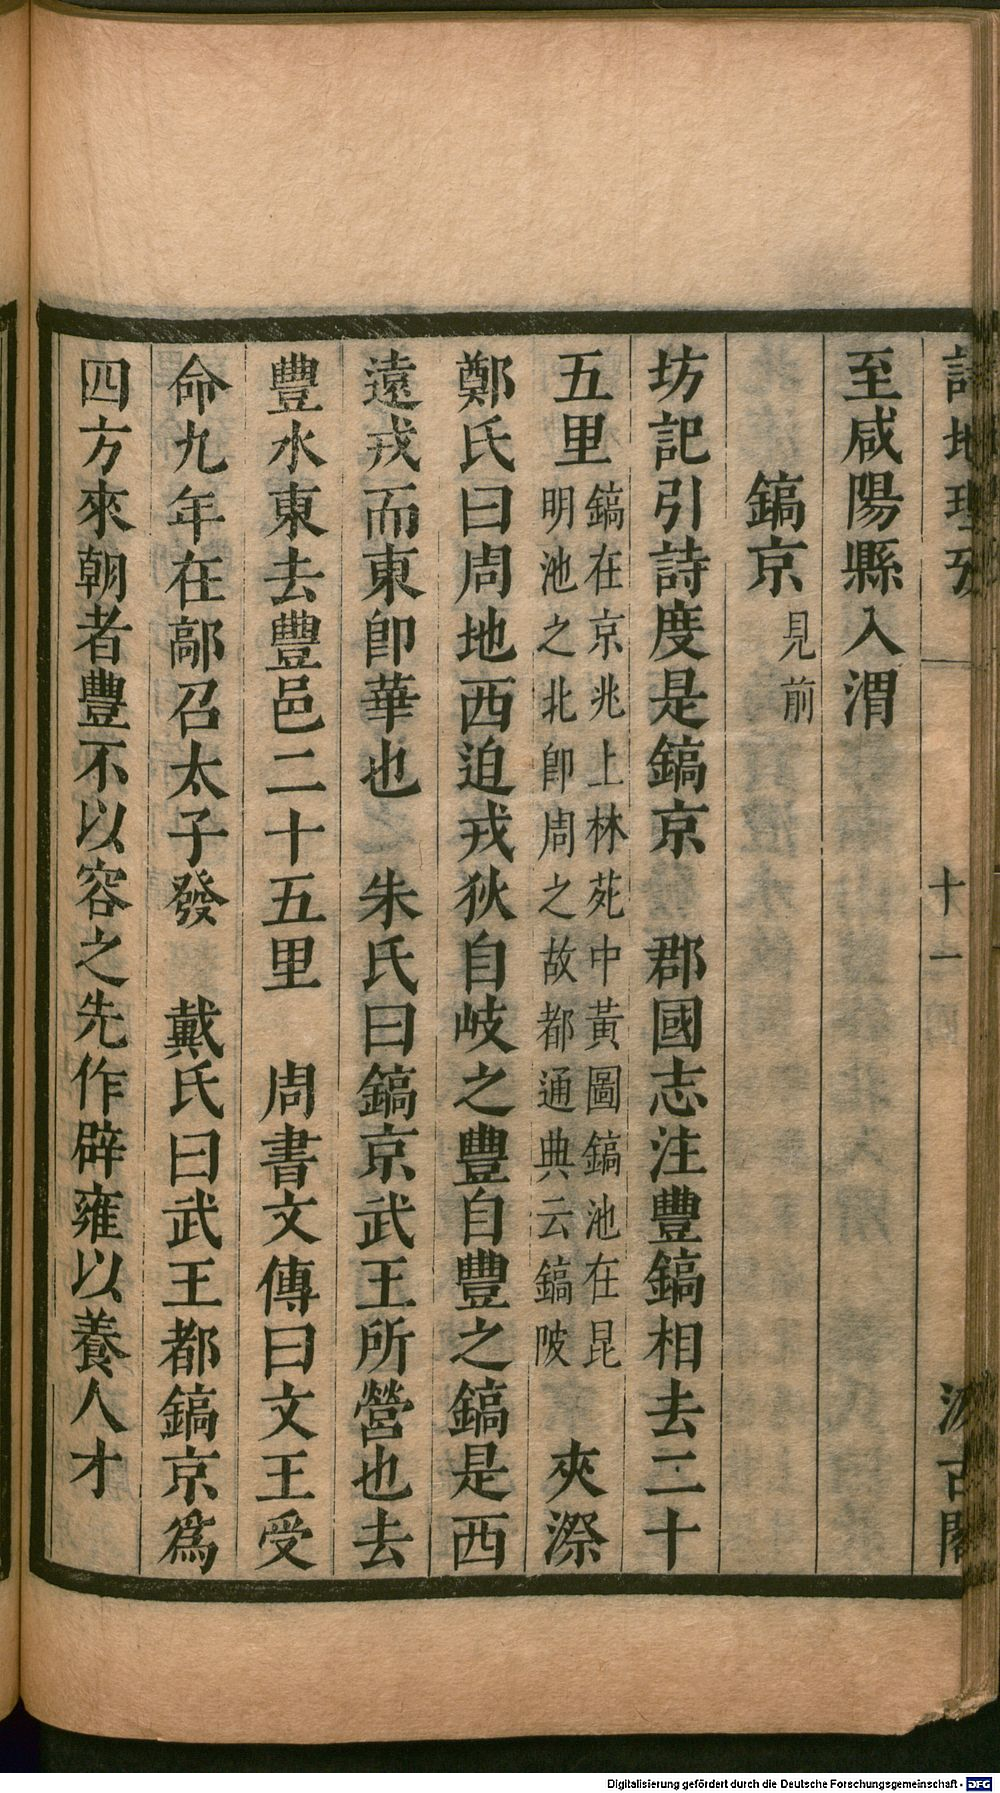 詩地理攷
十一
汲古閣
至咸陽縣入渭
鎬京見前
坊記引詩度是鎬京　郡國志注豐鎬相去二十
五里鎬在京兆上林苑中黃圖鎬池在昆
明池之北卽周之故都通典云鎬陂　夾漈
鄭氏曰周地西迫戎狄自岐之豐自豐之鎬是西
遠戎而東卽華也　朱氏曰鎬京武王所營也去
豐水東去豐邑二十五里　周書文傳曰文王受
命九年在鄗召太子發　戴氏曰武王都鎬京爲
四方來朝者豐不以容之先作辟雍以養人才
Digitalisierung gefördert durch die Deutsche Forschungsgemeinschaft - DFG